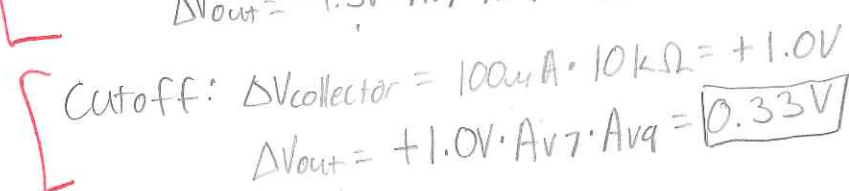 ΔVout =
Cutoff: ΔVcollector = 100uA · 10kΩ = +1.0V
ΔVout = +1.0V · Av7 · Av9 = 0.33V